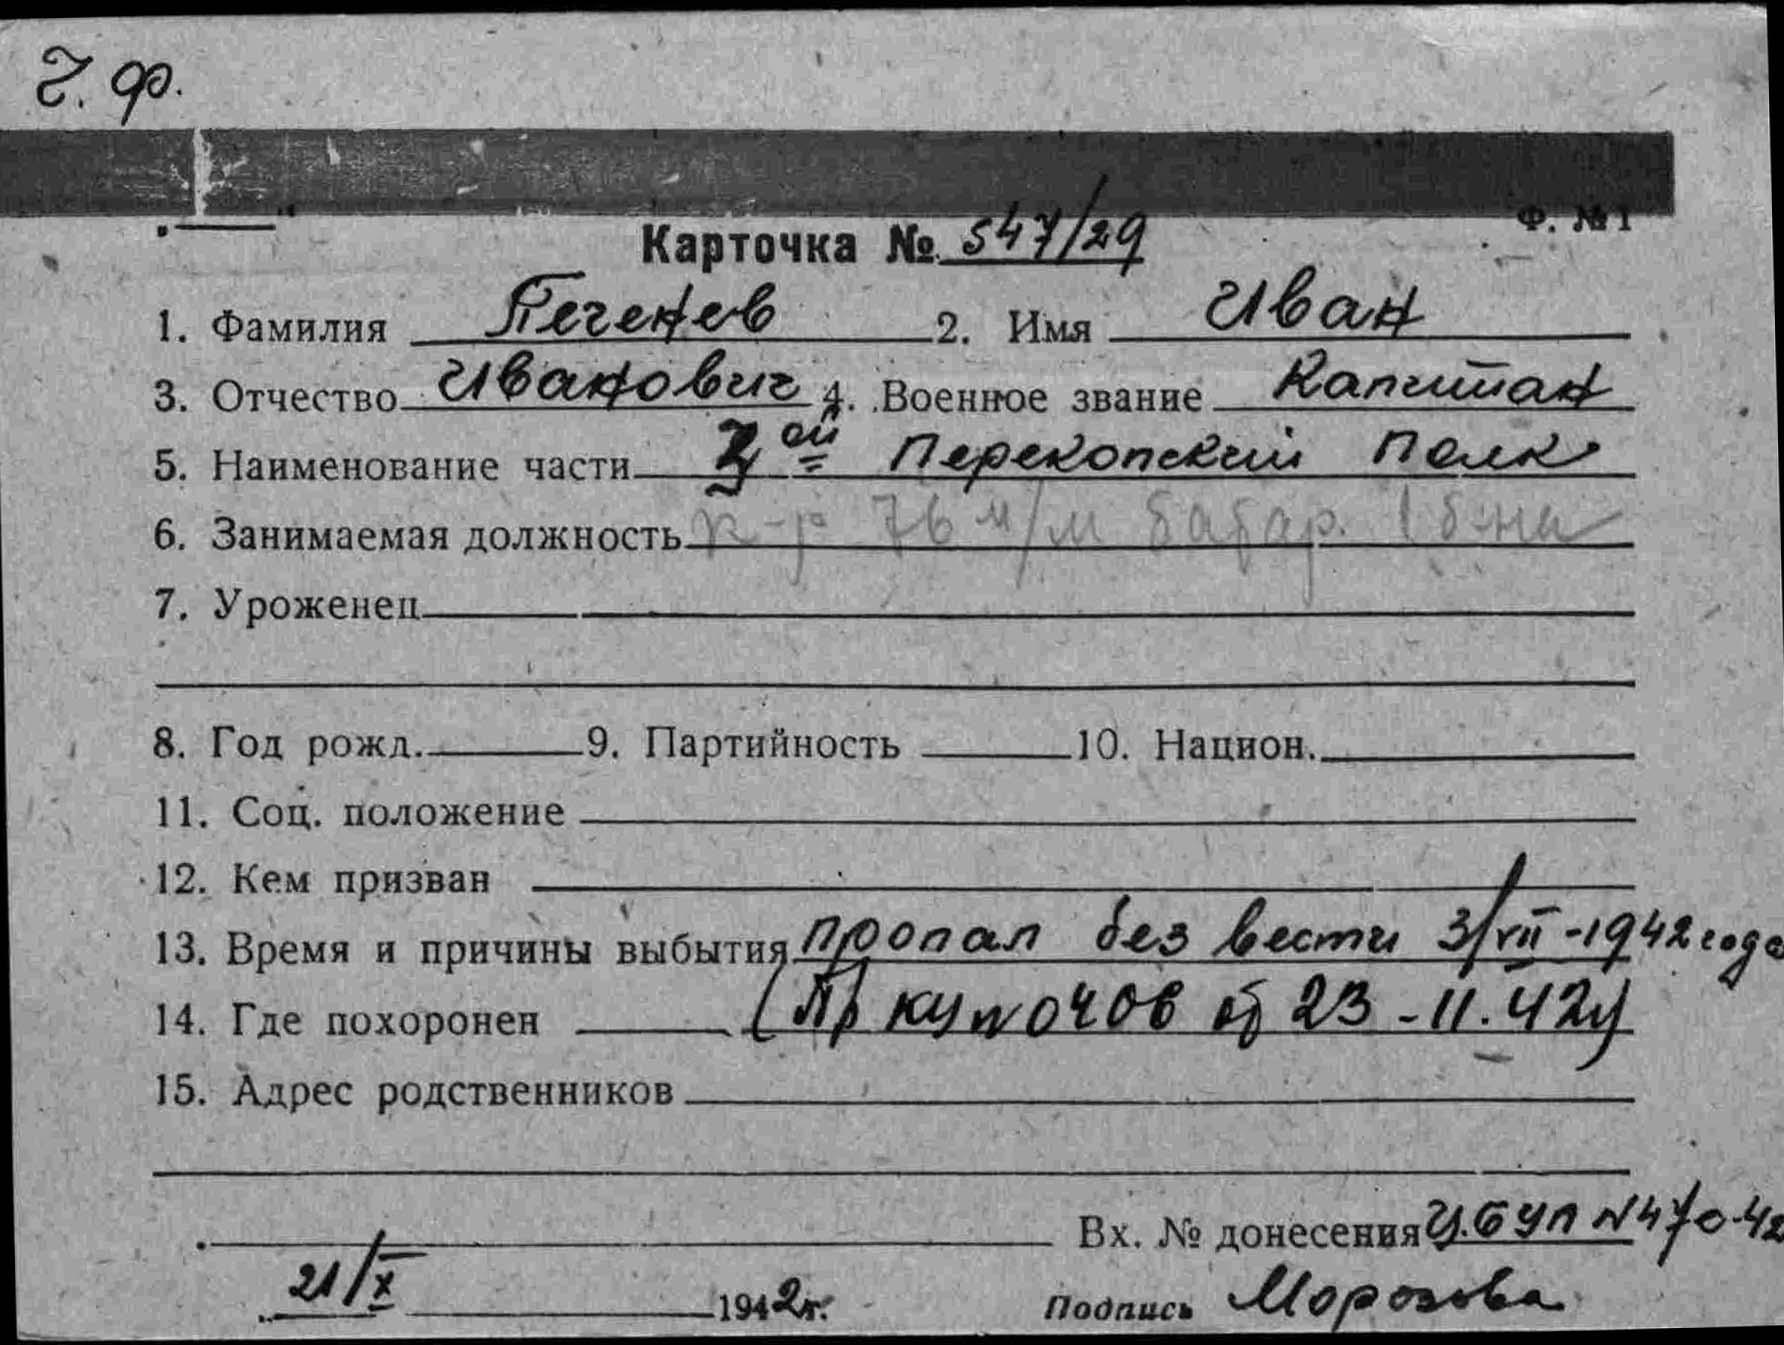 Ч. Ф.
Ф. №1
Карточка № 547/29
1. Фамилия Печенев 2. Имя Иван
3. Отчество Иванович 4. Военное звание Капитан
5. Наименование части 2ой Перекопский Полк
6. Занимаемая должность к-р 76 м/м батар. 1 б-на
7. Уроженец
8. Год рожд. 9. Партийность 10. Национ.
11. Соц. положение
12. Кем призван
13. Время и причины выбытия пропал без вести 3/VII-1942 года
14. Где похоронен (Пр 23-11.42г)
15. Адрес родственников
Вх. № донесения УП N 470-42
21/X 1942г. Подпись Морозова